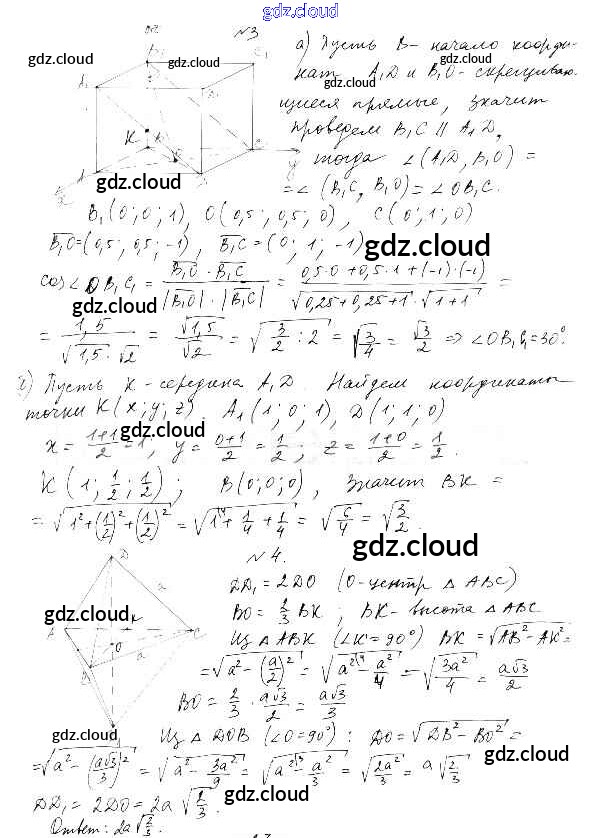 gdz.cloud
N3
gdz.cloud
gdz.cloud
а) Пусть B - начало коорди-
нат A₁D и B₁O - скрещиваю-
gdz.cloud
щиеся прямые, значит
проведем B₁C ∥ A₁D,
тогда ∠(A₁D, B₁O) =
gdz.cloud
= ∠(B₁C, B₁O) = ∠OB₁C.
B₁(0;0;1), O(0,5;0,5;0), C(0;1;0)
B₁O = (0,5; 0,5; -1), B₁C = (0; 1; -1)
gdz.cloud
cos∠OB₁C₁ = B₁O · B₁C / |B₁O| · |B₁C| = 0,5·0+0,5·1+(-1)·(-1) / √0,25+0,25+1 · √1+1 =
gdz.cloud
= 1,5 / √1,5 · √2 = √1,5 / √2 = √3/2 : 2 = √3/4 = √3/2 ⇒ ∠OB₁C₁ = 30°.
Пусть K - середина A₁D. Найдем координаты
точки K(x; y; z). A₁(1; 0; 1), D(1; 1; 0)
gdz.cloud
x = 1+1/2 = 1; y = 0+1/2 = 1/2; z = 1+0/2 = 1/2.
K(1; 1/2; 1/2); B(0; 0; 0), значит BK =
= √1²+(1/2)²+(1/2)² = √1+1/4+1/4 = √6/4 = √3/2.
gdz.cloud
N4.
DD₁ = 2DO (O-центр △ABC)
gdz.cloud
BO = 2/3 BK; BK - высота △ABC
Из △ABK (∠K = 90°) BK = √AB² - AK² =
= √a² - (a/2)² = √a² - a²/4 = √3a²/4 = a√3/2
BO = 2/3 · a√3/2 = a√3/3
gdz.cloud
Из △DOB (∠O = 90°): DO = √DB² - BO² =
gdz.cloud
= √a² - (a√3/3)² = √a² - 3a²/9 = √a² - a²/3 = √2a²/3 = a√2/3
DD₁ = 2DO = 2a√2/3.
gdz.cloud
Ответ: 2a√2/3.